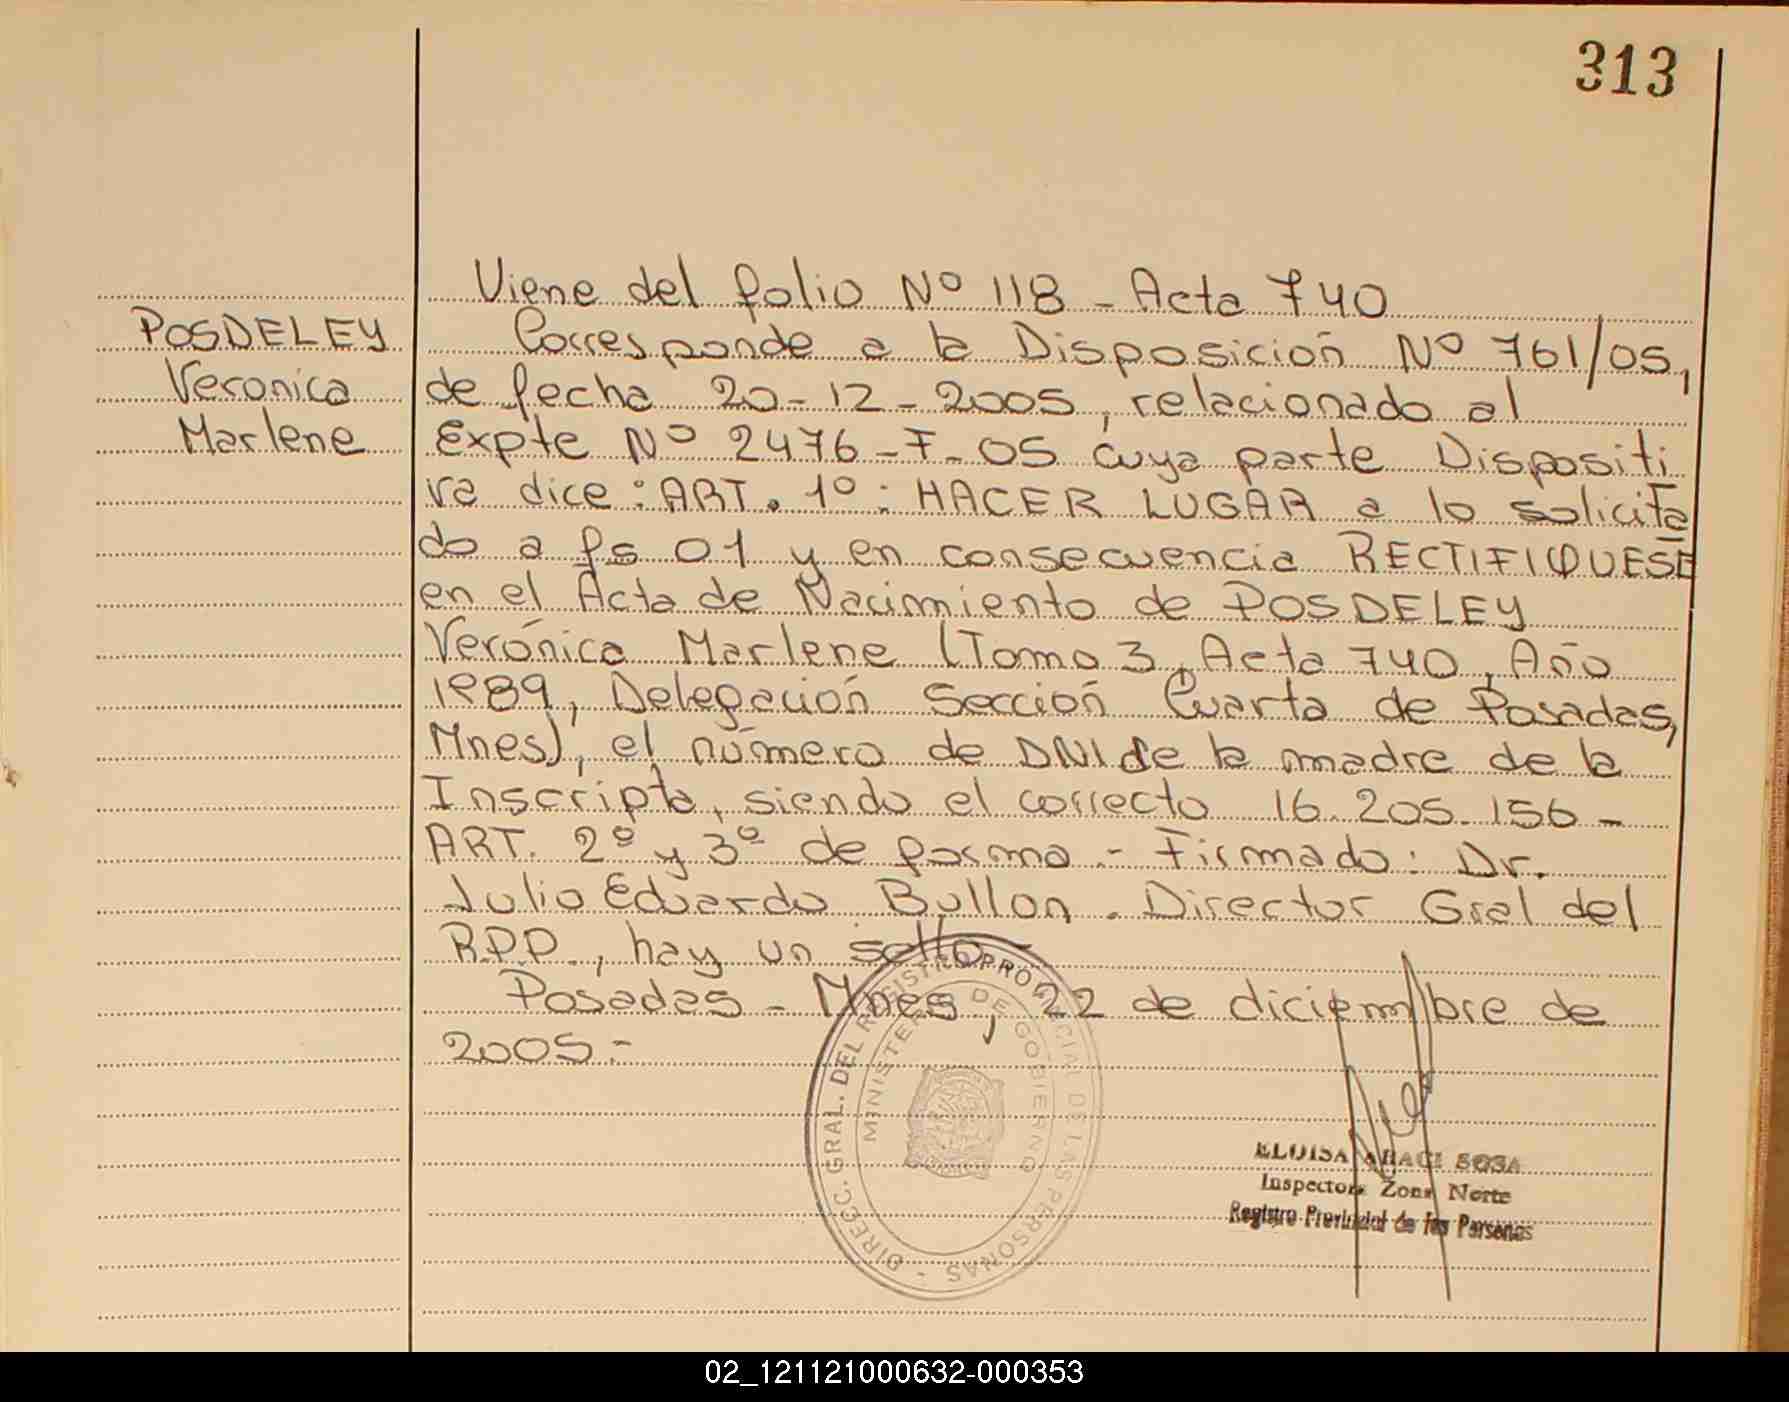 313
Viene del folio Nº 118 - Acta 740
POSDELEY
Veronica
Marlene
Corresponde a la Disposición Nº 761/05,
de fecha 20-12-2005, relacionado al
Expte Nº 2476-F-05 cuya parte Dispositi
va dice: ART. 1º: HACER LUGAR a lo solicita
do a fs 01 y en consecuencia RECTIFIQUESE
en el Acta de Nacimiento de POSDELEY
Verónica Marlene (Tomo 3, Acta 740, Año
1989, Delegación Sección Cuarta de Posadas,
Mnes), el número de DNI de la madre de la
Inscripta, siendo el correcto 16.205.156-
ART. 2º y 3º de forma.- Firmado: Dr.
Julio Eduardo Bullon. Director Gral del
R.P.P., hay un sello-
Posadas - Mnes, 22 de diciembre de
2005.-
DIRECC. GRAL. DEL REGISTRO PROVINCIAL DE LAS PERSONAS -
MINISTERIO DE GOBIERNO
ELOISA ARACI SOSA
Inspectora Zona Norte
Registro Provincial de las Personas
02_121121000632-000353